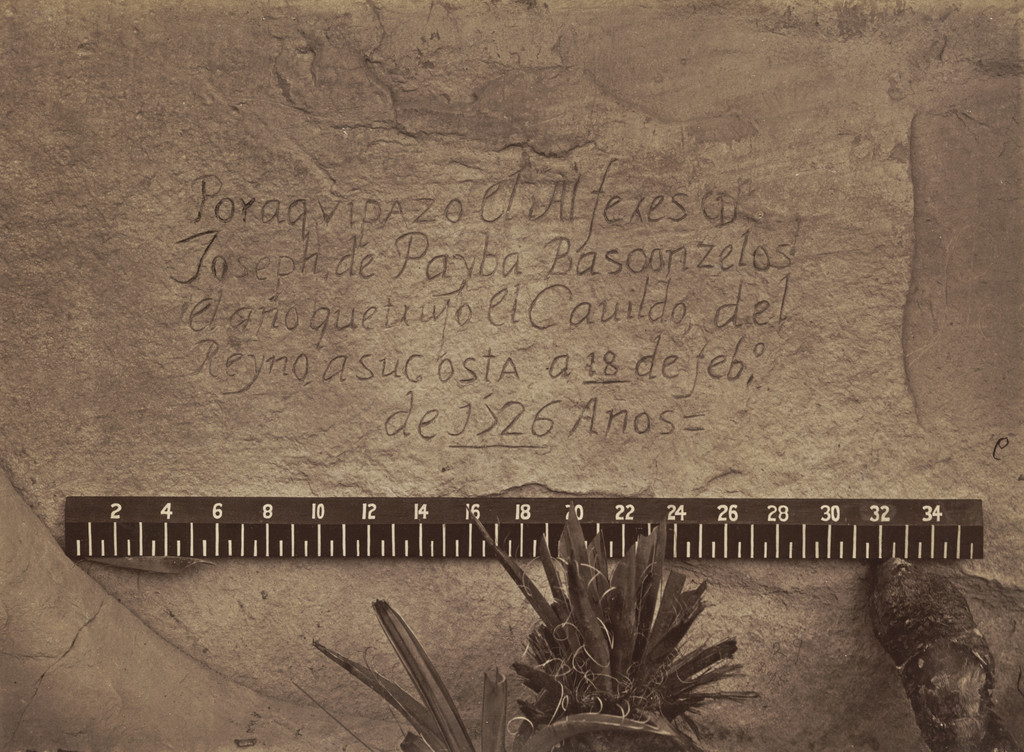 Por aqvi pazo el Alfexes Dn
Joseph, de Payba Basconzelos
el año que trujo el Cauildo, del
Reyno, a su costa a 18 de febo.
de 1526 Años=
2 4 6 8 10 12 14 16 18 20 22 24 26 28 30 32 34
e